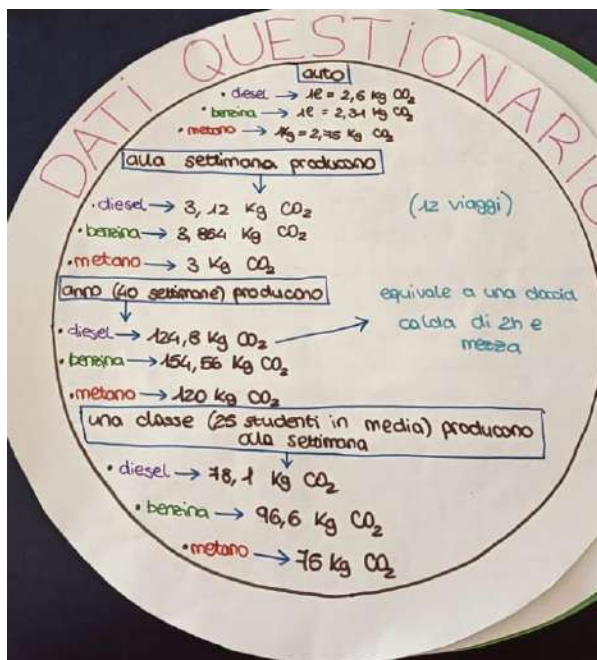 DATI QUESTIONARIO
auto
• diesel → 1l = 2,6 kg CO₂
• benzina → 1l = 2,31 kg CO₂
• metano → 1kg = 2,75 kg CO₂
alla settimana producono
• diesel → 3,12 kg CO₂ (12 viaggi)
• benzina → 3,864 kg CO₂
• metano → 3 kg CO₂
anno (40 settimane) producono
equivale a una doccia
calda di 2h e
mezza
• diesel → 124,8 kg CO₂
• benzina → 154,56 kg CO₂
• metano → 120 kg CO₂
una classe (25 studenti in media) producono
alla settimana
• diesel → 78,1 kg CO₂
• benzina → 96,6 kg CO₂
• metano → 75 kg CO₂